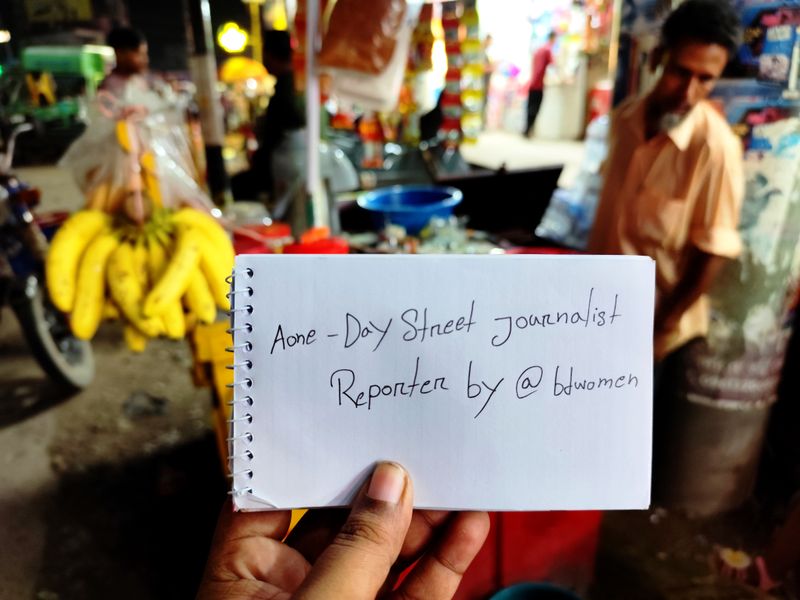 Aone - Day Street journalist
Reporter by @ bdwomen